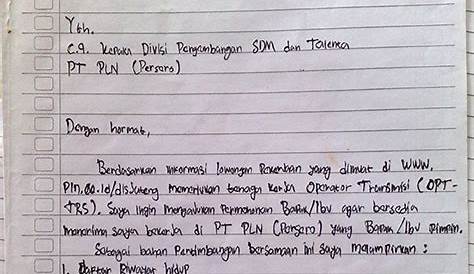 Yth.
C.q. Kepala Divisi Pengembangan SDM dan Talenta
PT PLN (Persero)
Dengan hormat,
Berdasarkan informasi lowongan yang dimuat di WWW.
Pln.co.id/disjateng memerlukan tenaga kerja Operator Transmisi (OPT-
TRS). Saya ingin mengajukan Permohonan Bapak/Ibu agar bersedia
menerima saya bekerja di PT PLN (Persero) yang Bapak/Ibu Pimpin.
Sebagai bahan Pertimbangan bersamaan ini saya melampirkan :
1. Daftar Riwayat hidup